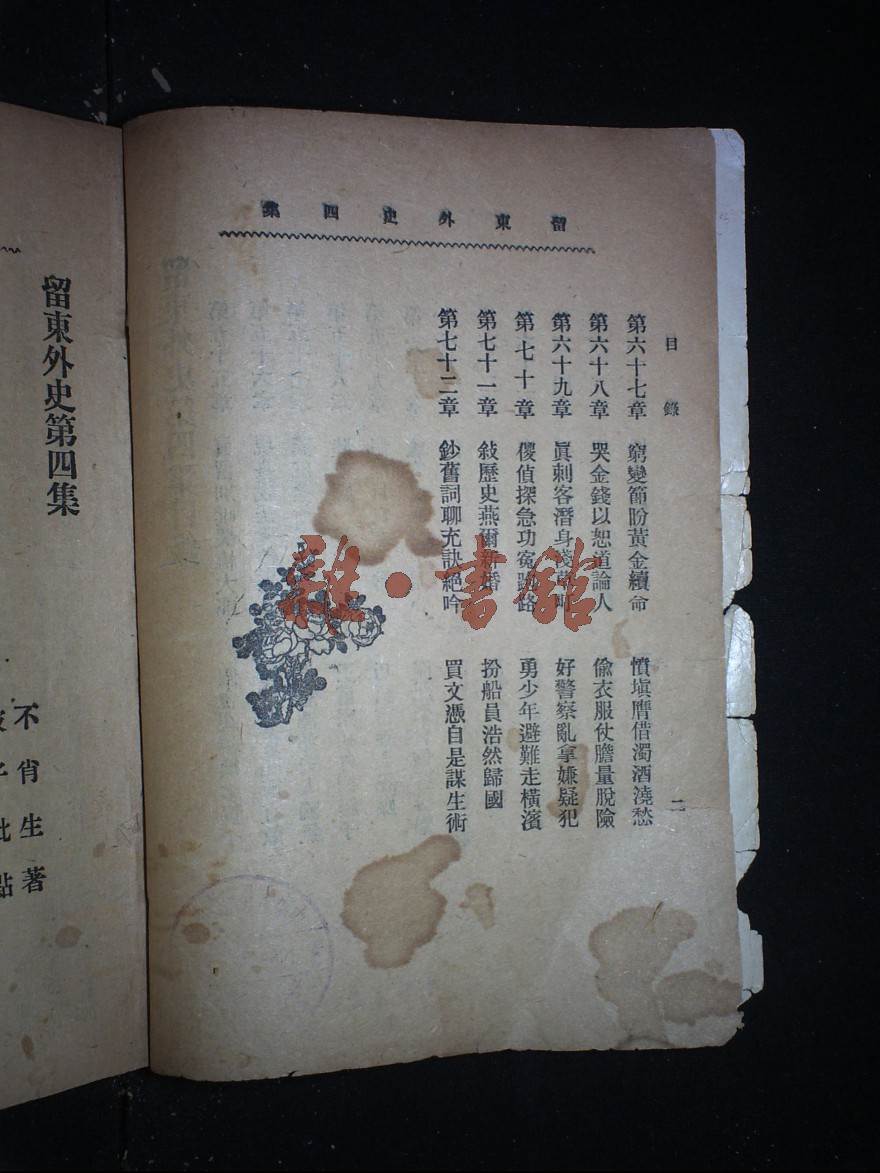 留東外史四集
目錄
二
第六十七章 窮變節盼黃金續命 憤塡膺借濁酒澆愁
第六十八章 哭金錢以恕道論人 偷衣服仗膽量脫險
第六十九章 眞刺客潛身淺草町 好警察亂拿嫌疑犯
第七十章 儍偵探急功寃跑路 勇少年避難走橫濱
第七十一章 敍歷史燕爾新婚 扮船員浩然歸國
第七十二章 鈔舊詞聊充訣絕吟 買文憑自是謀生術
雜·書館
留東外史第四集
不肖生著
批點